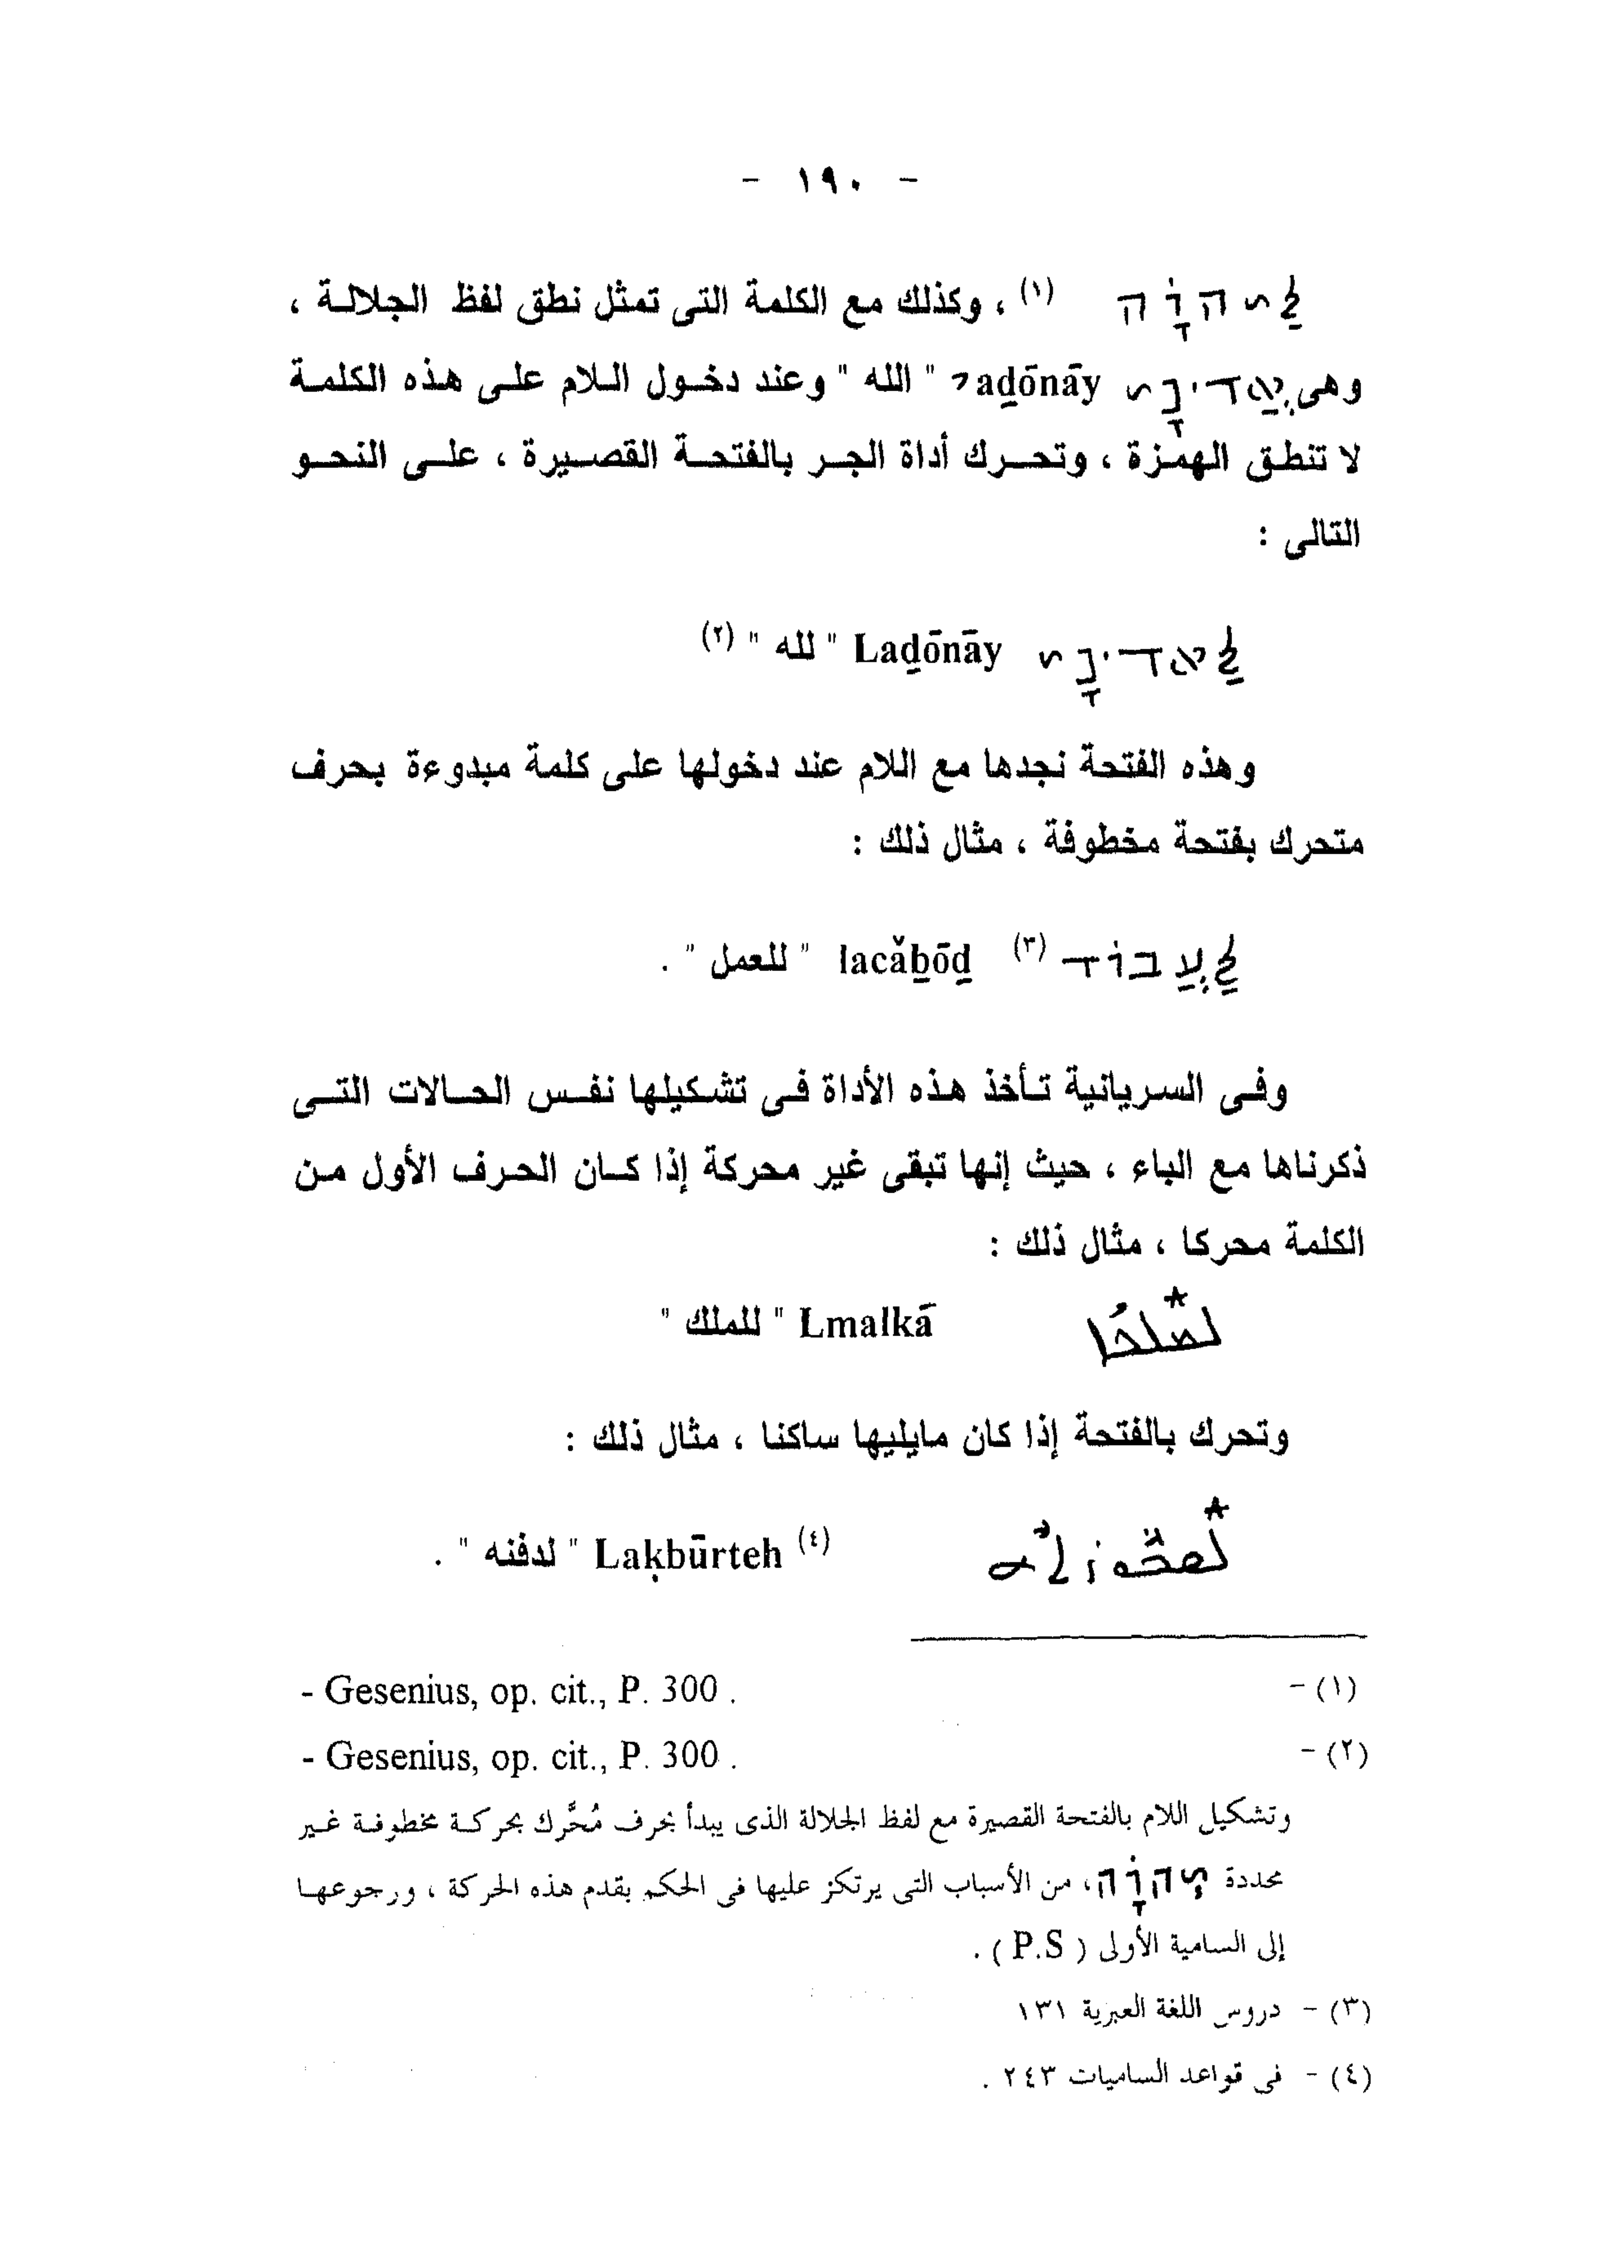 - ١٩٠ -
לַיהוָֹה (١) ، وكذلك مع الكلمة التى تمثل نطق لفظ الجلالة ،
وهى אֲדֹנָי ʾaḏōnāy " الله " وعند دخول اللام على هذه الكلمة
لا تنطق الهمزة ، وتحرك أداة الجر بالفتحة القصيرة ، على النحو
التالى :
לַאדֹנָי Laḏōnāy " لله " (٢)
وهذه الفتحة نجدها مع اللام عند دخولها على كلمة مبدوءة بحرف
متحرك بفتحة مخطوفة ، مثال ذلك :
לַעֲבוֹד (٣) lacǎḇōḏ " للعمل " .
وفى السريانية تأخذ هذه الأداة فى تشكيلها نفس الحالات التى
ذكرناها مع الباء ، حيث إنها تبقى غير محركة إذا كان الحرف الأول من
الكلمة محركا ، مثال ذلك :
ܠܡܰܠܟܳܐ Lmalkā " للملك "
وتحرك بالفتحة إذا كان مايليها ساكنا ، مثال ذلك :
ܠܰܩܒܽܘܪܬܶܗ (٤) Laḳbūrteh " لدفنه " .
(١) - - Gesenius, op. cit., P. 300 .
(٢) - - Gesenius, op. cit., P. 300 .
وتشكيل اللام بالفتحة القصيرة مع لفظ الجلالة الذى يبدأ بحرف مُحَّرك بحركة مخطوفة غير
محددة יְהוָֹה، من الأسباب التى يرتكز عليها فى الحكم بقدم هذه الحركة ، ورجوعها
إلى السامية الأولى ( P.S ) .
(٣) - دروس اللغة العبرية ١٣١
(٤) - فى قواعد الساميات ٢٤٣ .